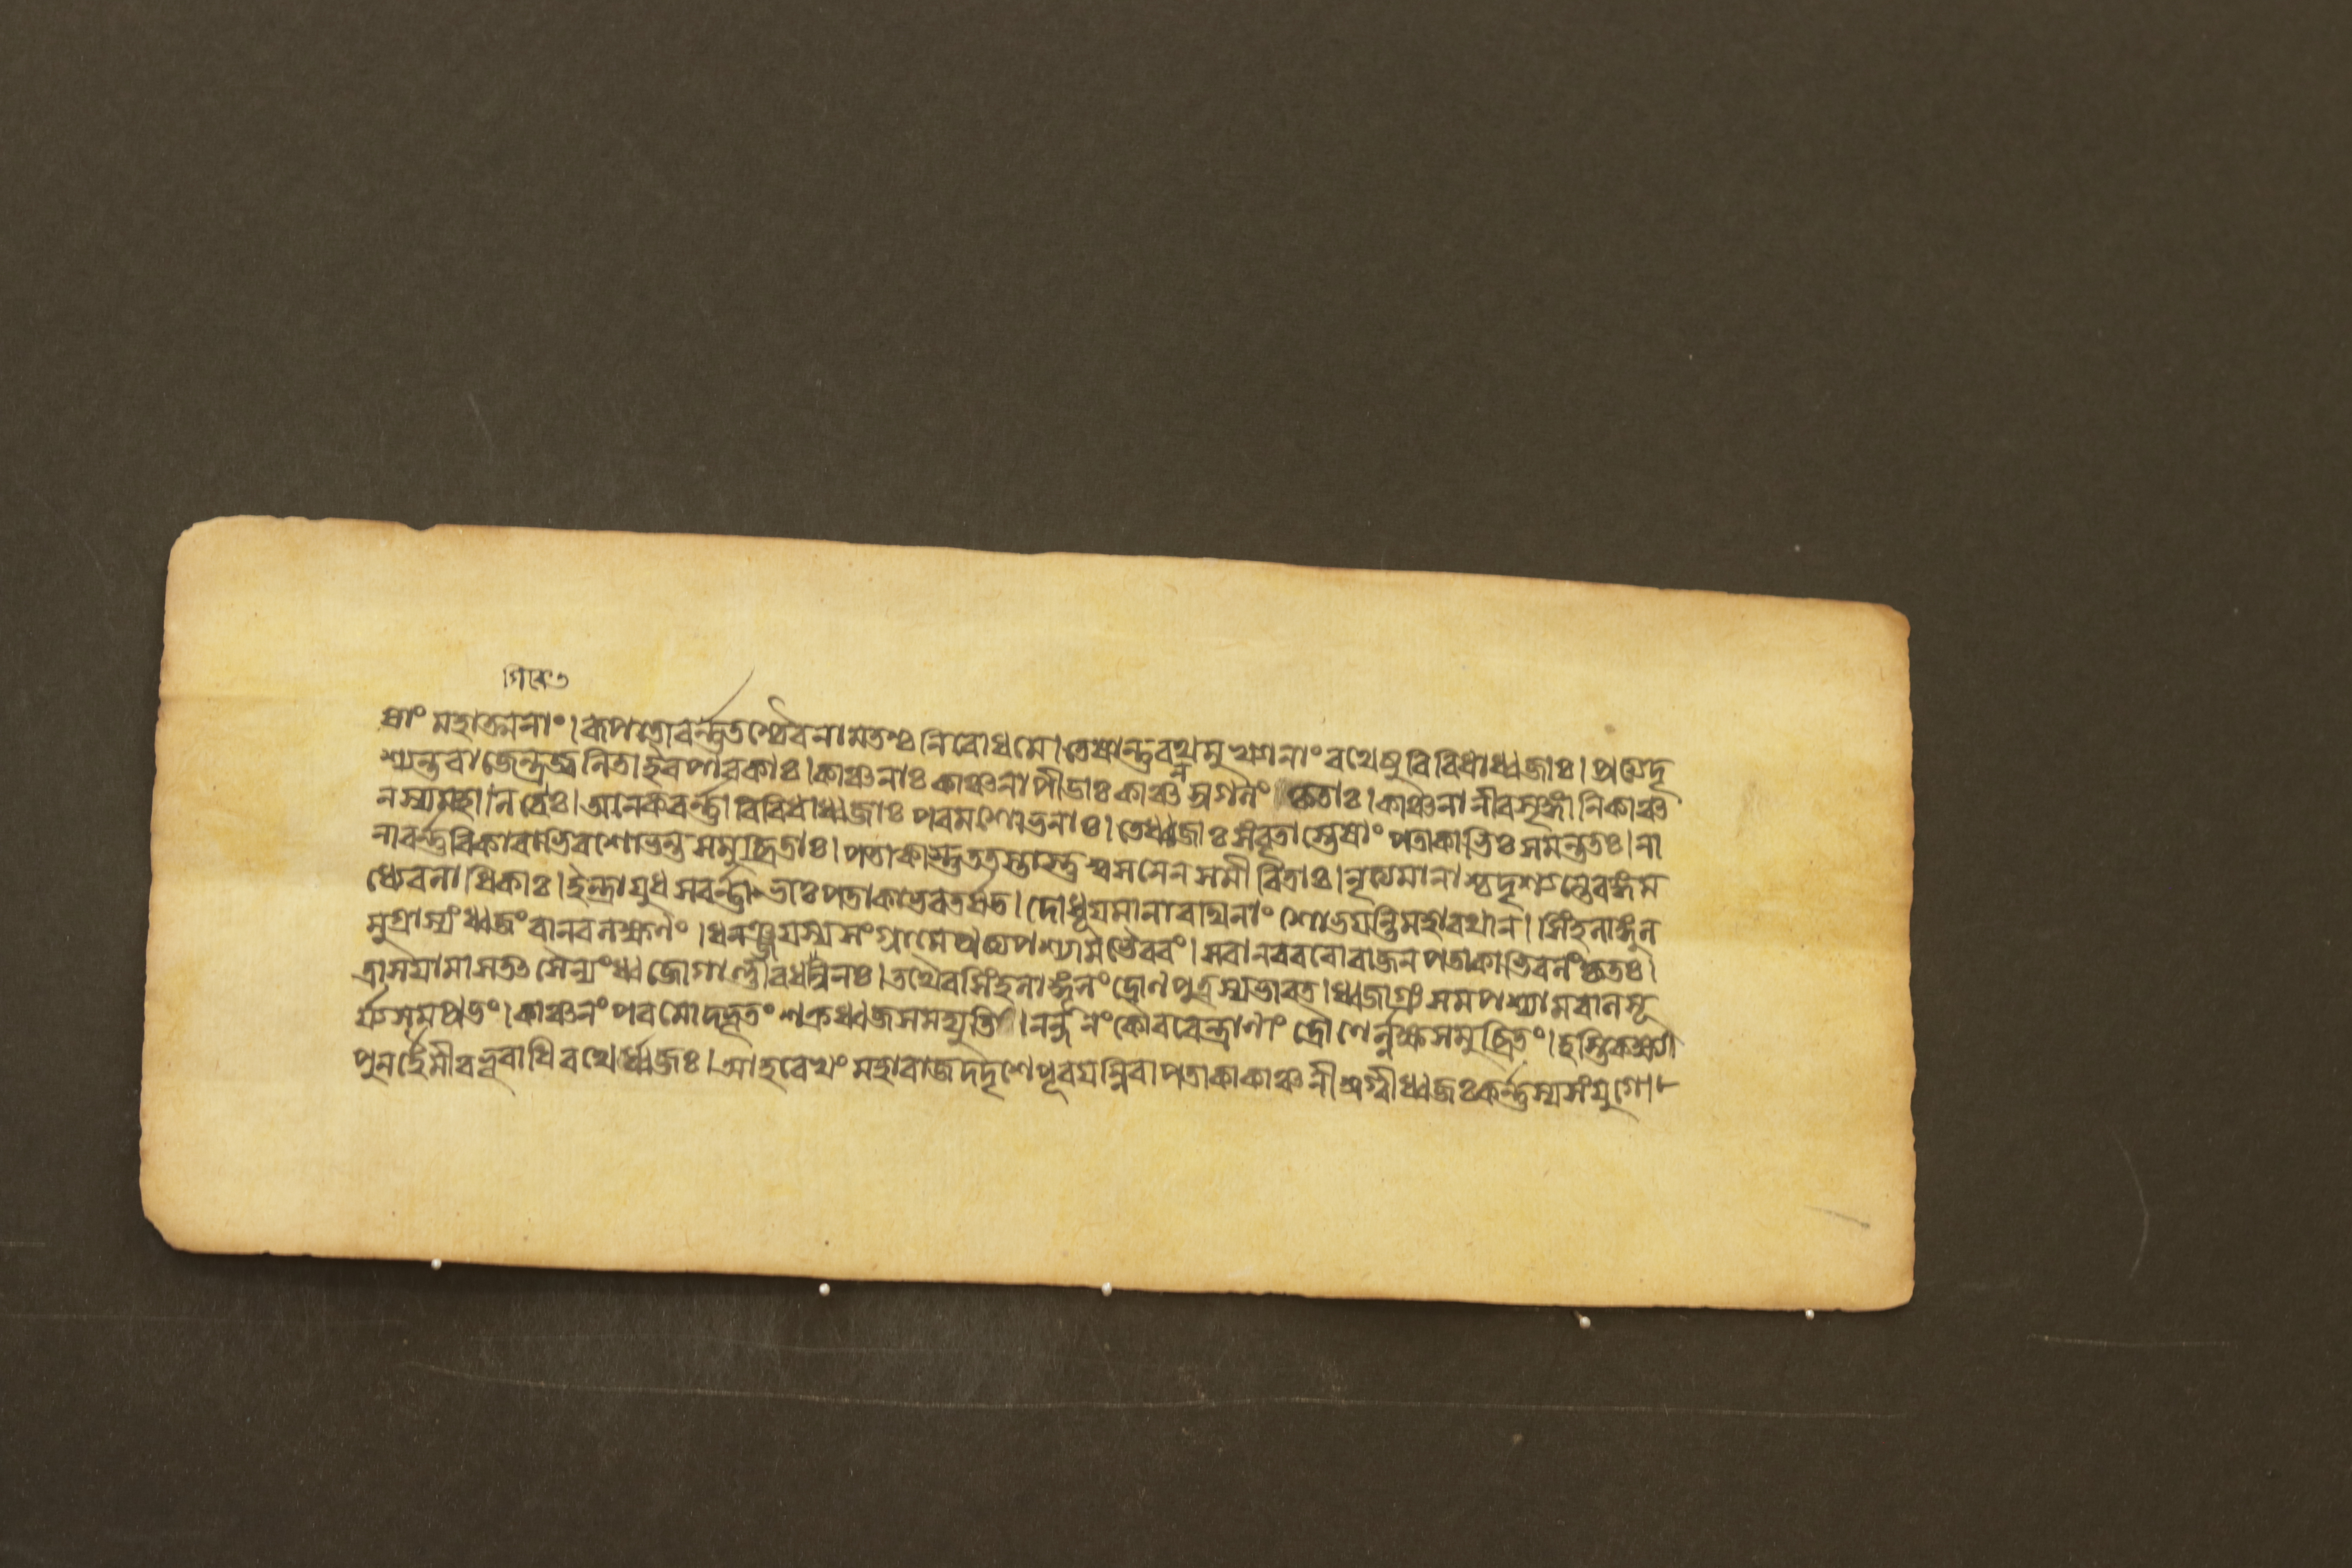 ষাং মহাত্মনাং। ৰূপতোবর্ন্নতশ্চৈবনামতশ্চ নিবোধমে। তেষান্তুৰথমুখ্যানাং ৰথেষুবিবিধাধ্বজাঃ। প্রত্যদৃ
শ্যন্তৰাজেন্দ্রজ্বলিতাইৱপাৱকাঃ। কাঞ্চনাঃ কাঞ্চনাপীডাঃ কাঞ্চনস্রগলং কৃতাঃ। কাঞ্চনানীৱশৃঙ্গানিকাঞ্চ
নস্যমহাগিৰেঃ। অনেকবর্ন্নাবিবিধাধ্বজাঃ পৰমশোভনাঃ। তেধ্বজাঃ সংবৃতাস্তেষাং পতাকাভিঃ সমন্ততঃ। না
নাবর্ন্নবিকাৰাভিৱশোভন্তসমুচ্ছ্রিতাঃ। পতাকাস্তুততস্তাস্তুশ্বসনেন সমীৰিতাঃ। নৃত্যমানাশ্চদৃশ্যন্তেৰঙ্গম
ধ্যেৱলাধিকাঃ। ইন্দ্রাযুধসবর্ন্নাভাঃ পতাকাভৰতর্ষভ। দোধূযমানাৰথিনাং শোভযন্তিমহাৰথান। সিংহলাঙ্গূল
মুগ্রাস্যং ধ্বজং বানৰলক্ষণং। ধনঞ্জযস্যসংগ্রামেপ্রত্যপশ্যামভৈৰবং। সবানৰবৰোৰাজনপতাকাভিৰলংকৃতঃ।
ত্রাসযামাসতত্সৈন্যং ধ্বজোগাণ্ডীবধন্বিনঃ। তথৈবসিংহলাঙ্গূলং দ্রোণপুত্রস্যভাৰত। ধ্বজাগ্রং সমপশ্যামবালসূ
র্য্যসমপ্রভং। কাঞ্চনং পৱনোদ্ধূতং শক্রধ্বজসমদ্যুতি। নন্দনং কৌৰৱেন্দ্রাণাং দ্রৌণের্ল্লক্ষ্মসমুচ্ছ্রিতং। হস্তিকক্ষ্যা
পুনর্হৈমীবভূবাধিৰথের্ধ্বজঃ। আহৱেখং মহাৰাজদদৃশেপূৰযন্নিৱ। পতাকাকাঞ্চনীস্রগ্বীধ্বজঃ কর্ন্নস্যসংযুগে।